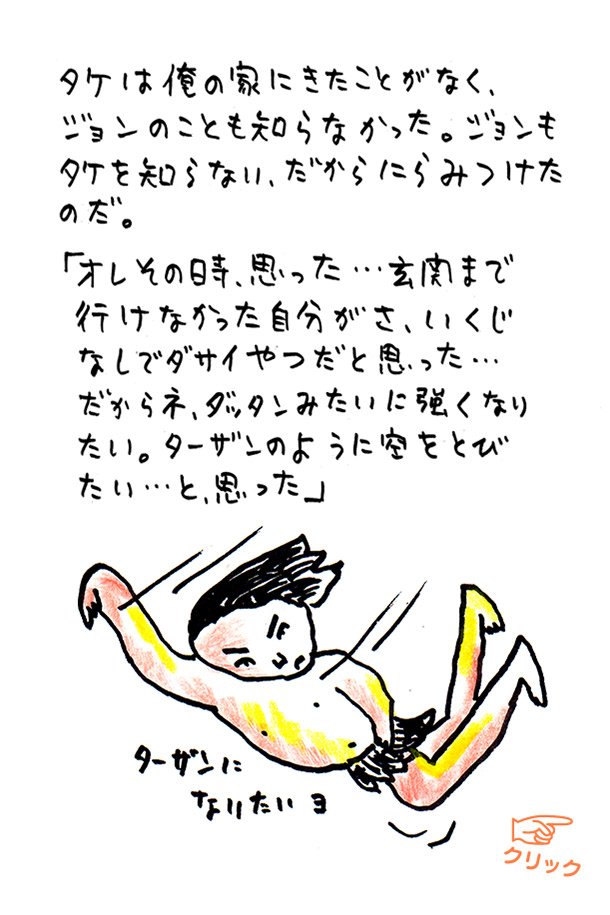 タケは俺の家にきたことがなく、
ジョンのことも知らなかった。ジョンも
タケを知らない、だからにらみつけた
のだ。
「オレその時、思った…玄関まで
行けなかった自分がさ、いくじ
なしでダサイやつだと思った…
だからネ、ダッタンみたいに強くなり
たい。ターザンのように空をとび
たい…と、思った」
ターザンに
なりたいヨ
クリック